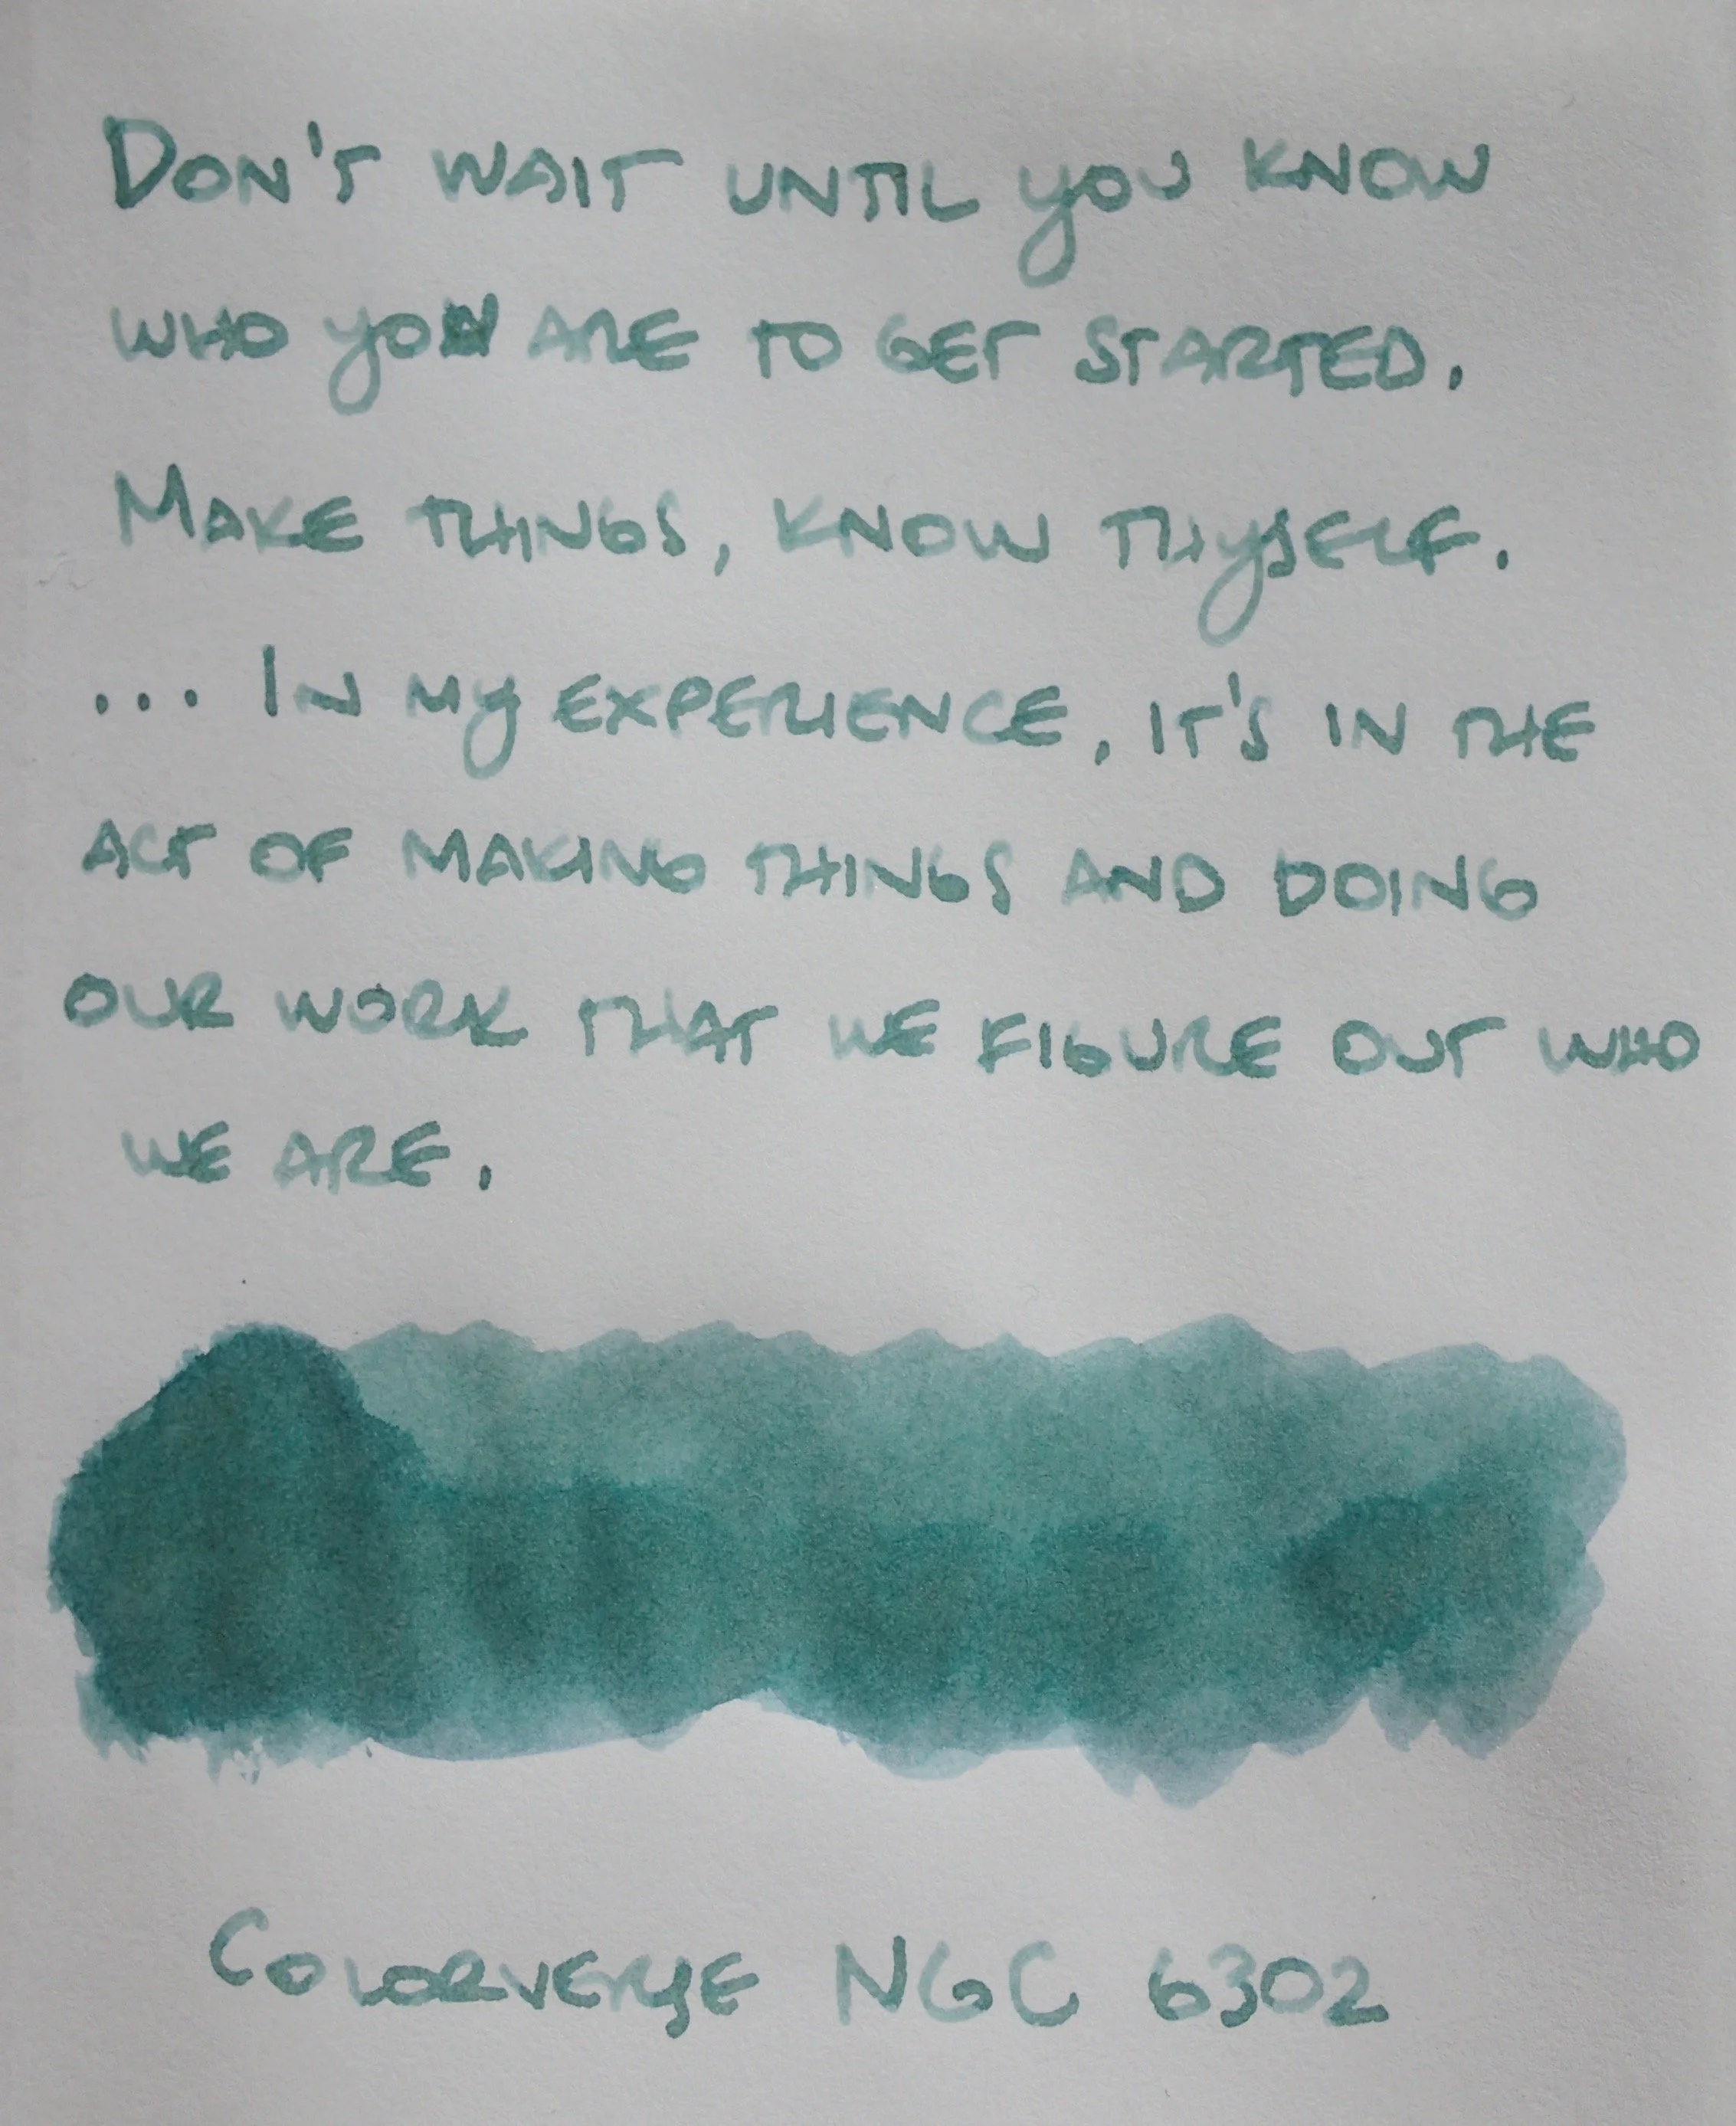 Don't wait until you know
who you are to get started.
Make things, know thyself.
... In my experience, it's in the
act of making things and doing
our work that we figure out who
we are.
Colorverse NGC 6302